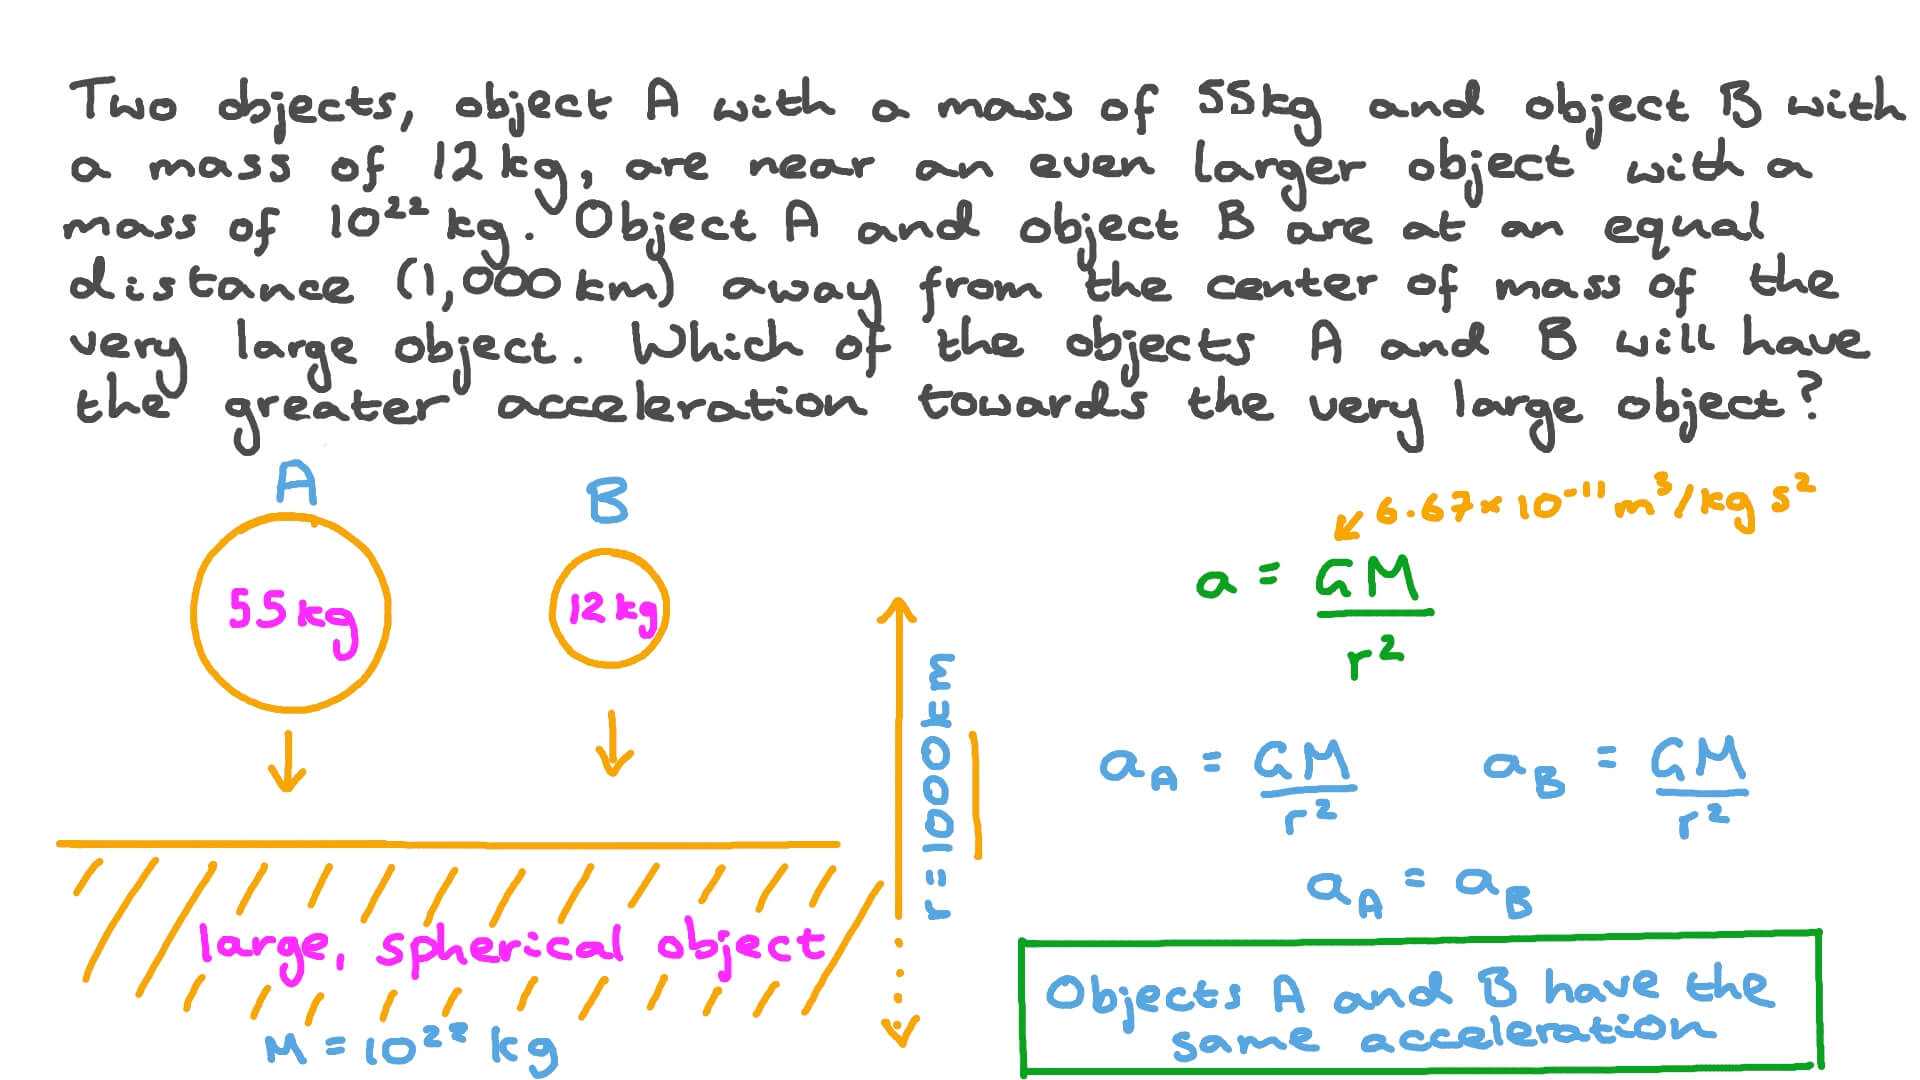 Two objects, object A with a mass of 55kg and object B with
a mass of 12 kg, are near an even larger object with a
mass of 10²² kg. Object A and object B are at an equal
distance (1,000 km) away from the center of mass of the
very large object. Which of the objects A and B will have
the greater acceleration towards the very large object?
A
B
55kg
12kg
r = 1000km
large, spherical object
M = 10²² kg
6.67 × 10⁻¹¹ m³/kg s²
a = GM
r²
a_A = GM
r²
a_B = GM
r²
a_A = a_B
Objects A and B have the
same acceleration